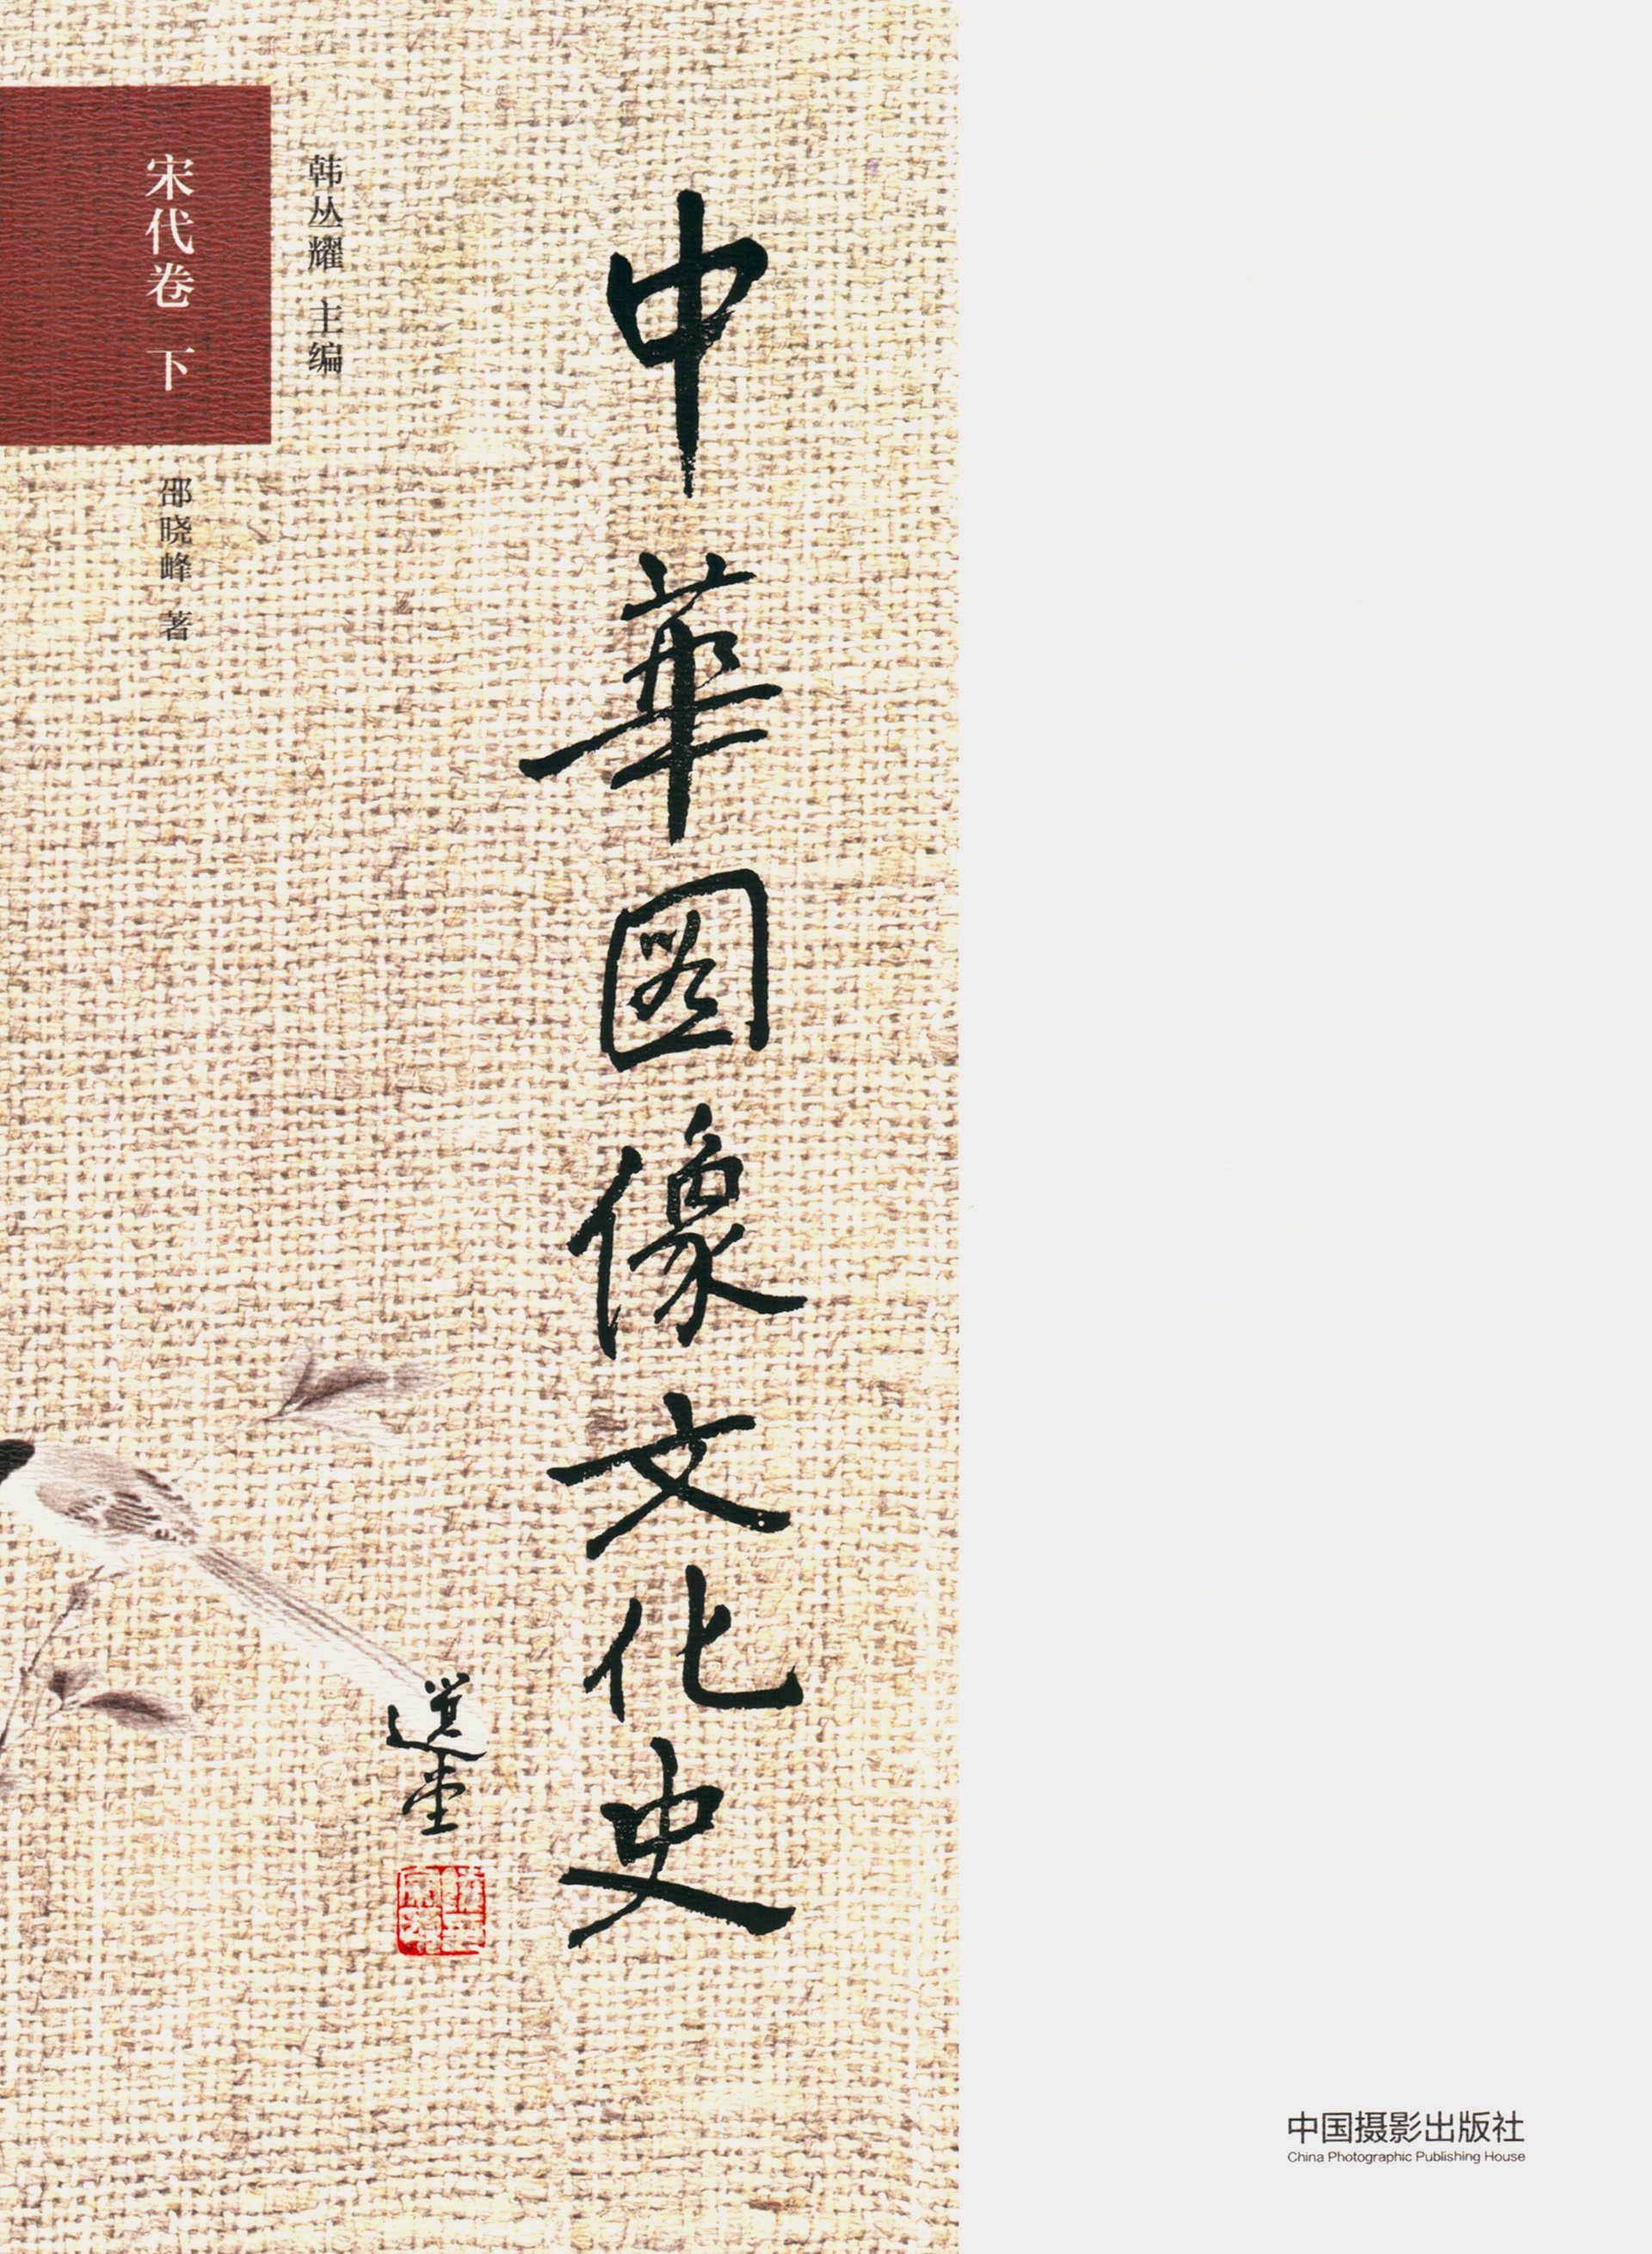 中華图像文化史
選堂
韩丛耀 主编
宋代卷 下
邵晓峰 著
中国摄影出版社
China Photographic Publishing House